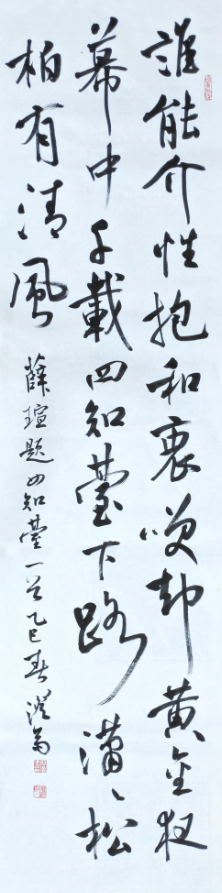 誰能介性抱和衷咲却黃金夜
幕中千載四知臺下路瀟〻松
柏有清風
薛瑄題四知臺一首乙巳春